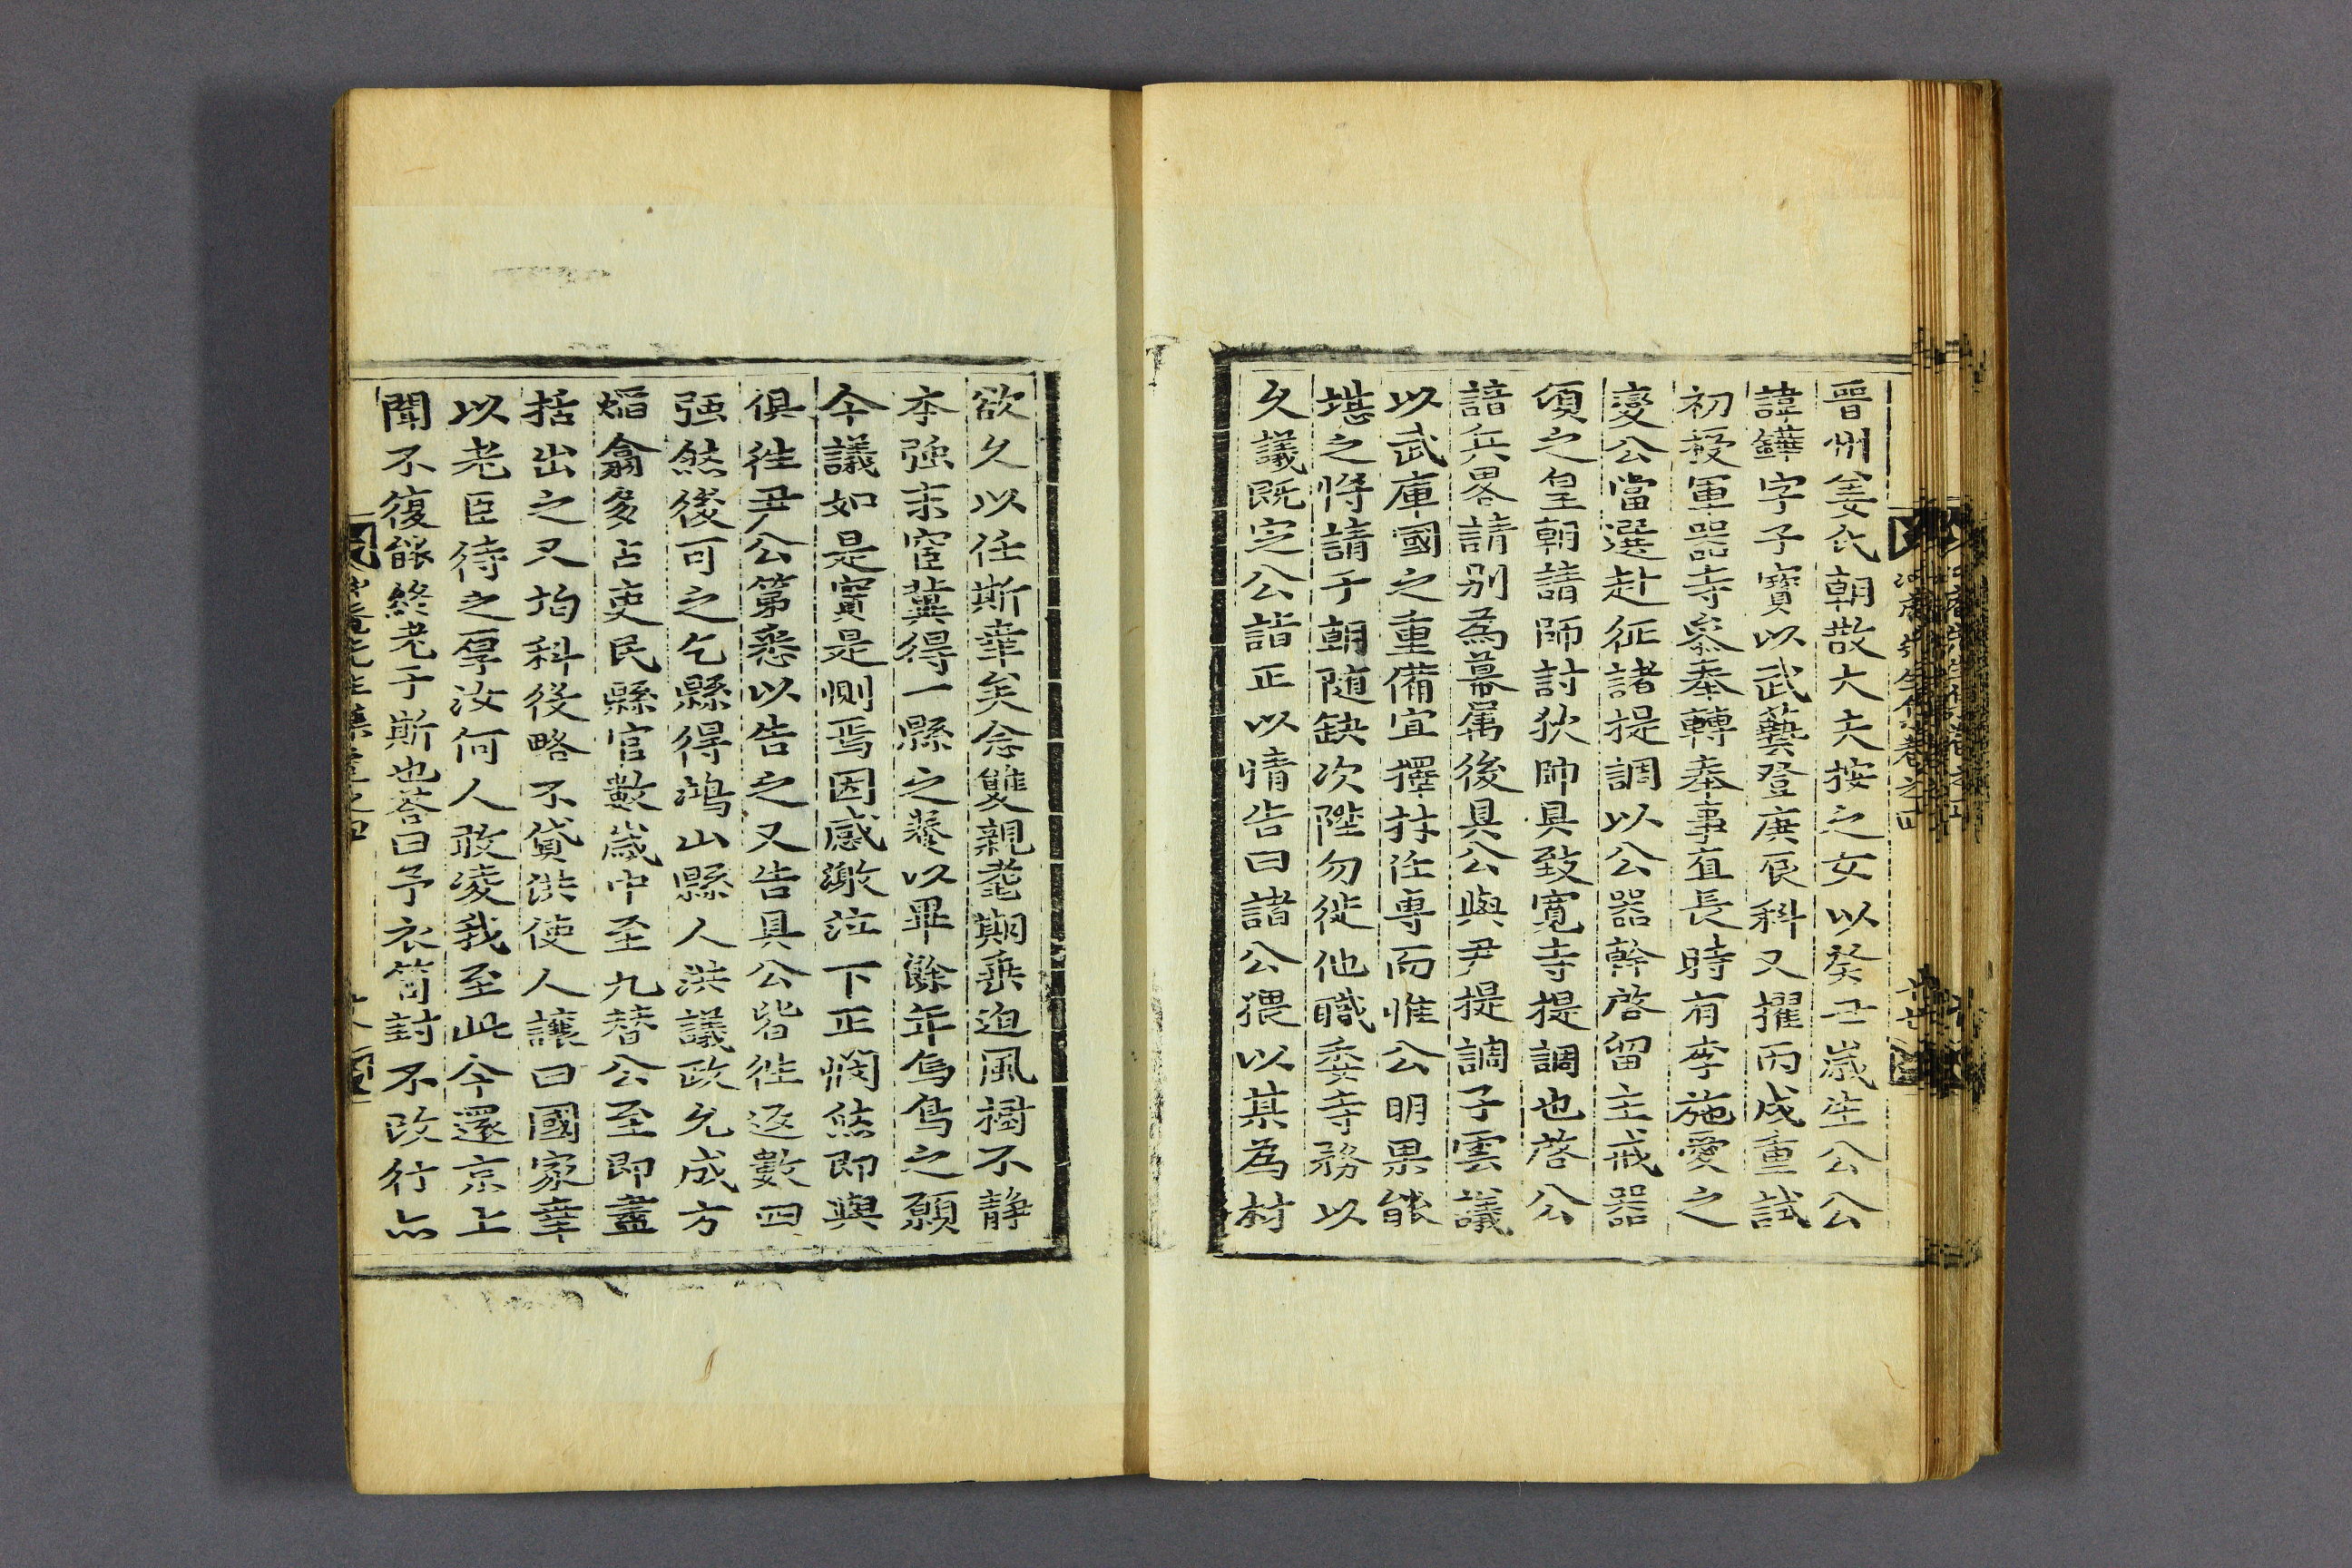 晉州姜氏朝散大夫按之女以癸亡歲生公公
諱鏵字子寶以武藝登庚辰科又擢丙戌重試
初授軍器寺叅奉轉奉事直長時有李施愛之
變公當選赴征諸提調以公器幹啓留主戒器
頃之皇朝請師討狄帥具致寬寺提調也啓公
諳兵畧請别為幕属後具公與尹提調子雲議
以武庫國之重備宜擇抹任専而惟公明果能
堪之将請于朝随缺次陞勿徙他職委寺務以
久議既定公詣正以情告曰諸公猥以某為材
欲久以任斯幸矣念雙親耄期垂迫風樹不静
本強末宦冀得一縣之養以畢餘年烏鳥之願
今議如是實是惻焉因感激泣下正憫然即與
俱往尹公第悉以告之又告具公皆往返數四
强然後可之乞縣得鴻山縣人洪議政允成方
焰翕多占吏民縣官數歲中至九替公至即盡
括出之又均科役略不貸洪使人讓曰國家幸
以老臣待之厚汝何人敢凌我至此今還京上
聞不復能終老于斯也荅曰予衣笥封不改行亦